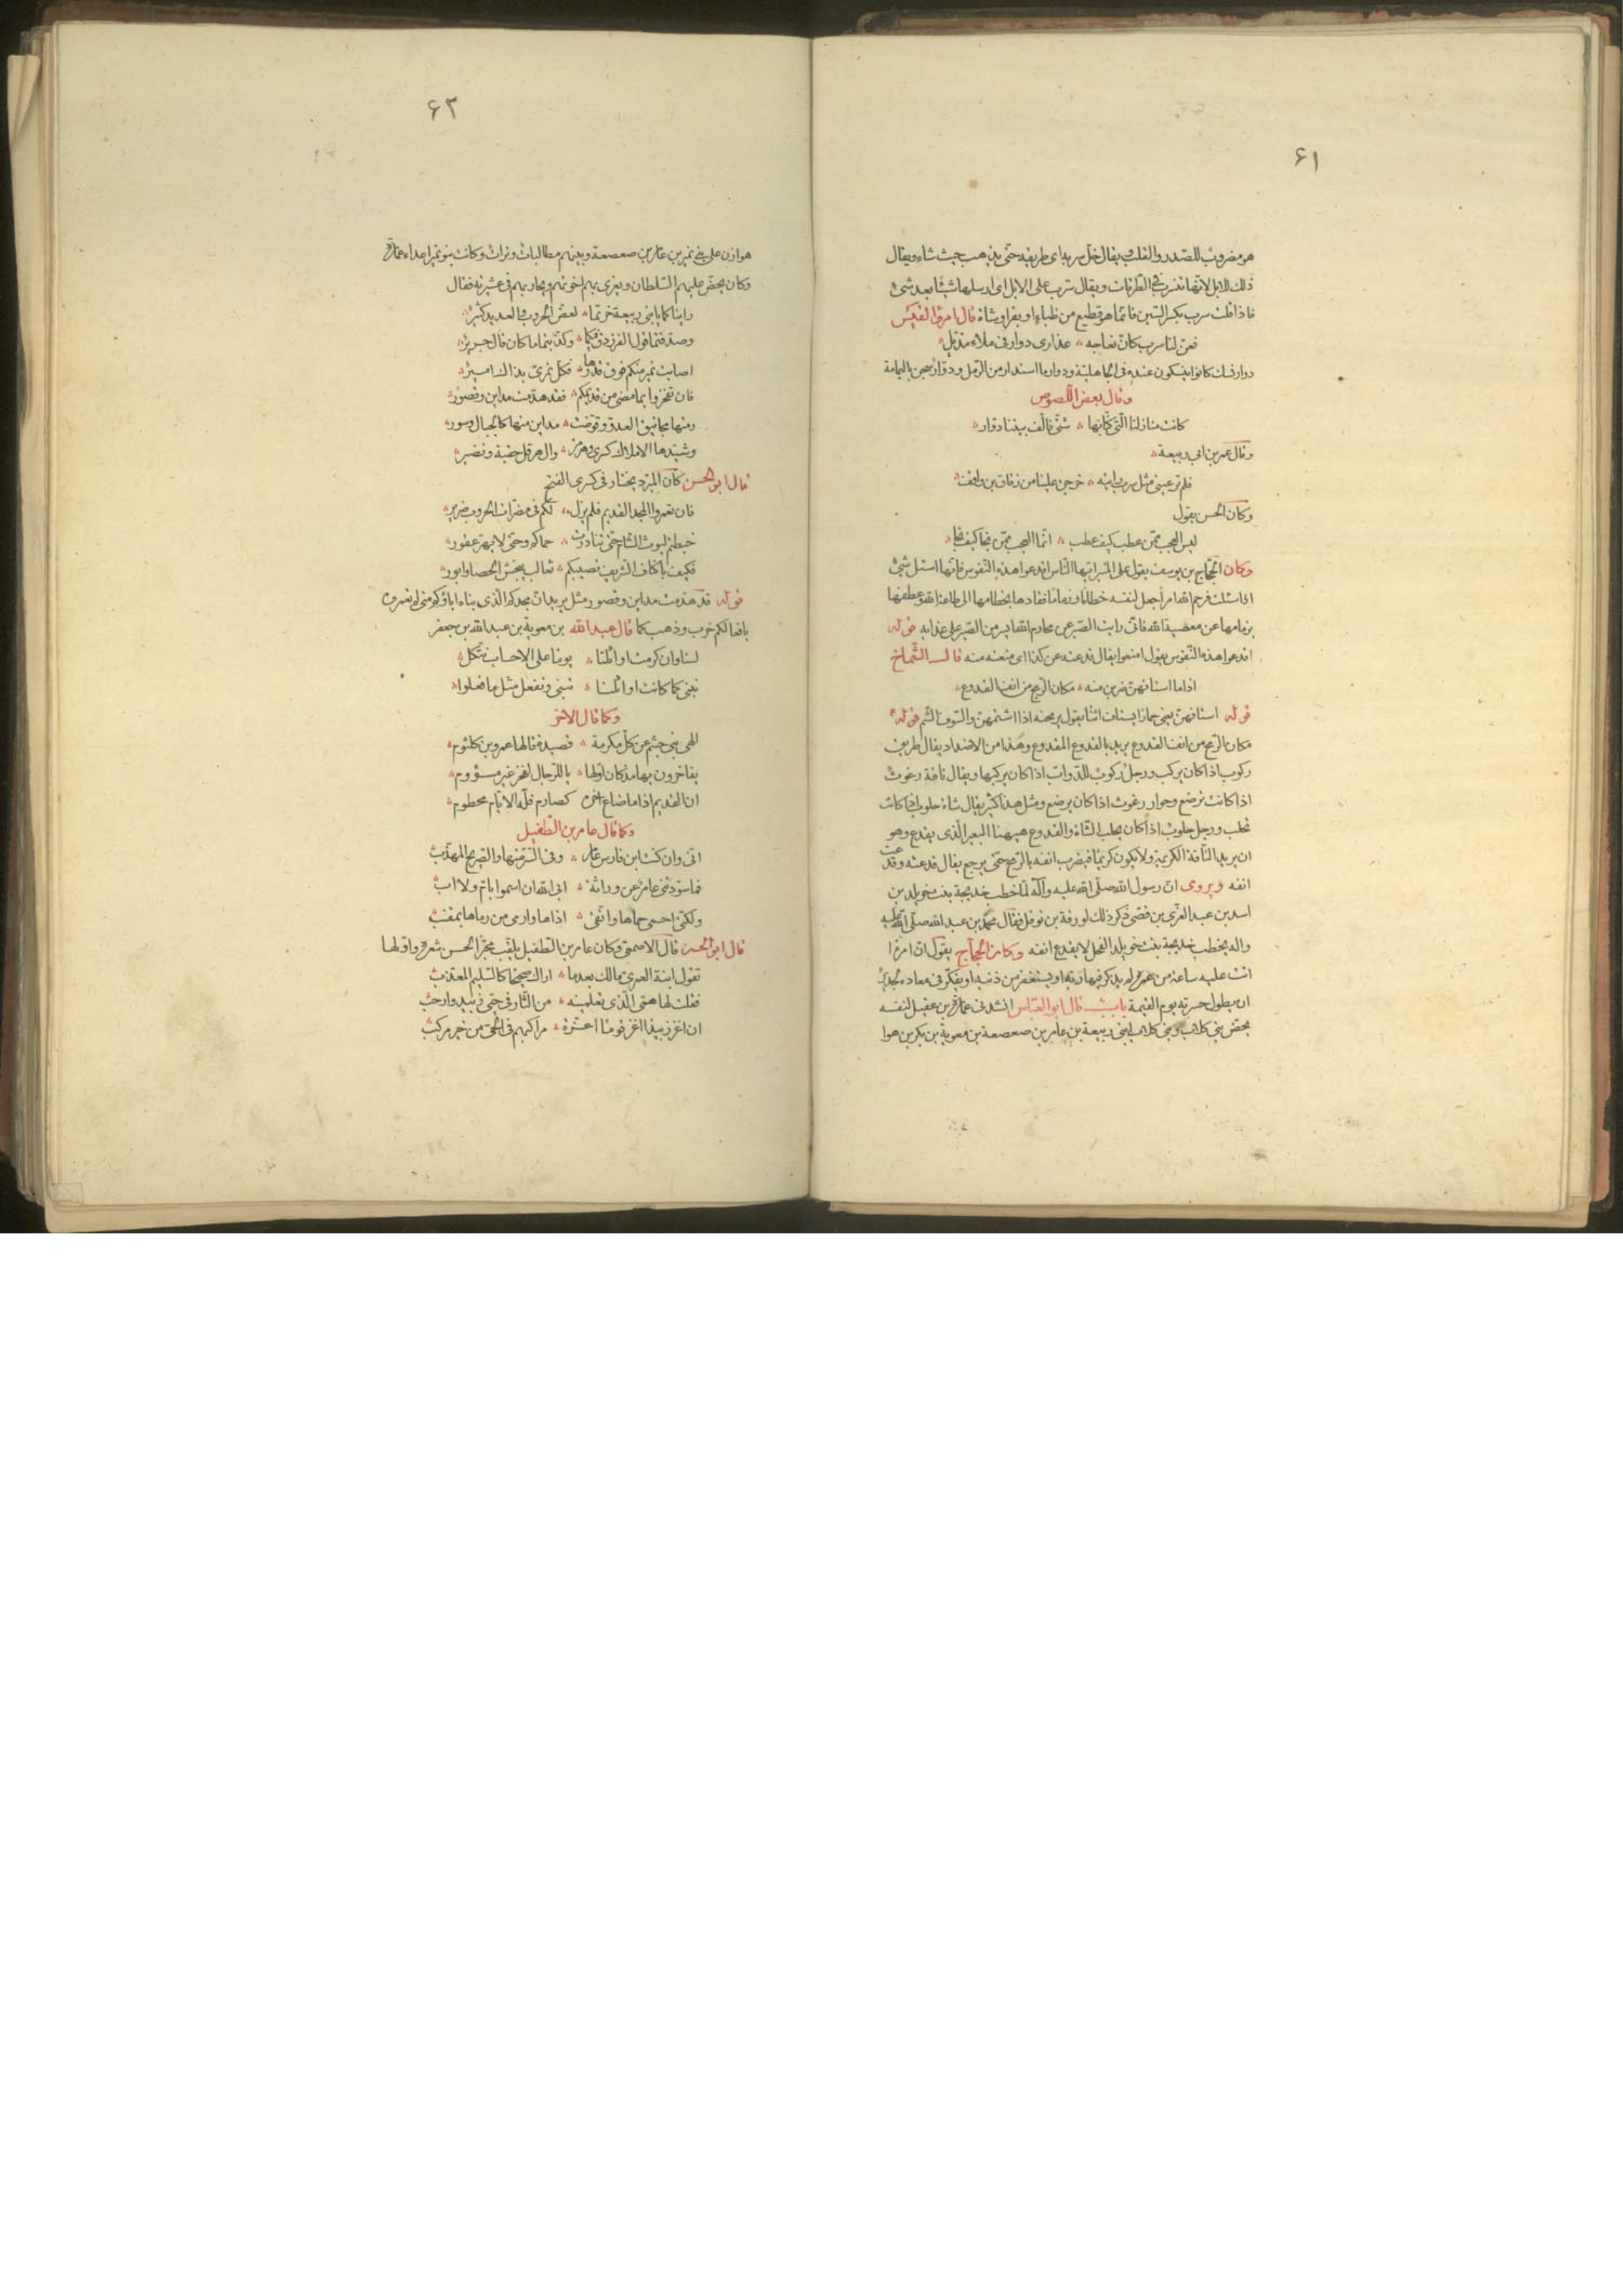 ۶۱
هو مضروب للصّدر والقلب يقال خلّ سربه اى طريقه حتّى يذهب حيث شاء ويقال
ذلك للابل لانّها تنسرب فى الطّرقات ويقال سرّب على الابل اى ارسلها شيئًا بعد شئ
فاذا قلت سرب بكسر السّين فانّما هو قطيع من ظباء او بقر او شاة قال امرؤ القيس
فعنّ لنا سرب كانّ نعاجه ؞ عذارى دوار فى ملاء مذيّل
دوار نسك كانوا ينسكون عنده فى الجاهليّة ودوار ما استدار من الرّمل ودوّار سجن باليمامة
وقال بعض اللّصوص
كانت منازلنا الّتى كنّا بها ؞ شتّى فالّف بيننا دوّار
وقال عمر بن ابى ربيعة
فلم تر عينى مثل سرب رايته ؞ خرجن علينا من زقاق بن واقف
وكان الحسن يقول
ليس العجب ممّن عطب كيف عطب ؞ انّما العجب ممّن نجا كيف نجا
وكان الحجّاج بن يوسف يقول على المنبر ايّها النّاس اقدعوا هذه النّفوس فانّها اسئل شئ
اذا سئلت فرحم الله امرأ جعل لنفسه خطامًا وزمامًا فقادها بخطامها الى طاعة الله وعطفها
بزمامها عن معصية الله فانّى رايت الصّبر عن محارم الله ايسر من الصّبر على عذابه قوله
اقدعوا هذه النّفوس يقول امنعوا يقال قدعته عن كذا اى منعته منه قال الشّماخ
اذا ما استافهنّ ضربن منه ؞ مكان الرّمح من انف القدوع
قوله استافهنّ يعنى حمارًا يستاف اتنًا يقول يرمحنه اذا اشتمّهنّ والسّوف الشّم قوله
مكان الرّمح من انف القدوع يريد بالقدوع المقدوع وهذا من الاضداد يقال طريق
ركوب اذا كان يركب ورجل ركوب للدّواب اذا كان يركبها ويقال ناقة رغوث
اذا كانت ترضع وحوار رغوث اذا كان يرضع ومثل هذا كثير يقال شاة حلوب اذا كانت
تحلب ورجل حلوب اذا كان يحلب الشّاة والقدوع هيهنا البعير الّذى يقدع وهو
ان يريد النّاقة الكريمة ولا يكون كريمًا فيضرب انفه بالرّمح حتّى يرجع يقال قدعته وقدعت
انفه ويروى انّ رسول الله صلّى الله عليه وآله لمّا خطب خديجة بنت خويلد بن
اسد بن عبد العزّى بن قصىّ ذكر ذلك لورقة بن نوفل فقال محمّد بن عبد الله صلّى الله عليه
وآله يخطب خديجة بنت خويلد الفحل لا يقدع انفه وكان الحجّاج يقول انّ امرءًا
اتت عليه ساعة من عمره لم يذكر فيها ربّه او يستغفر من ذنبه او يفكّر فى معاده لجدير
ان يطول حسرته يوم القيمة باب قال ابو العبّاس انشدنى عمارة بن عقيل لنفسه
يحضّ بنى كلاب وبنى كلاب ابنى ربيعة بن عامر بن صعصعة بن معوية بن بكر بن هوا
۶۲
هوازن على بنى نمير بن عامر بن صعصعة وبينهم مطالبات وترات وكانت بنو نمير اعداء عمارة
وكان يحضّ عليهم السّلطان ويغرى بهم اخوتهم ويحاربهم فى عشيرته فقال
راينا كما يا ابنى ربيعة خرتما ؞ لعض الحروب والعديد كثير
وصدّقتما قول الفرزدق فيكما ؞ وكذّبتما ما كان قال جرير
اصابت نمير منكم فوق قدرها ؞ فكل نمرى بذاك امير
فان تفخروا بما مضى من قديمكم ؞ فقد هدمت مداين وقصور
رمتها مجانيق العدوّ وقوّضت ؞ مداين منها كالجبال وسور
وشيّدها الاملاك كسرى وهرمز ؞ وال هرقل حقبة ونضير
قال ابو الحسن كان المبرّد يختار فى كسرى الفتح
فان تعمروا المجد القديم فلم يزل ؞ لكم فى مضرّات الحروب ضرير
خبطتم ليوث الشام حتّى تناذرت ؞ حماكم وحتّى لا يهرّ عقور
فكيف باكناف الشّريف نصيبكم ؞ ثعالب يبحثن الحصا وابور
قوله قد هدمت مداين وقصور مثل يريد انّ مجدكم الّذى بناه اباؤكم متى لم تعمروه
بافعالكم خرب وذهب كما قال عبد الله بن معوية بن عبد الله بن جعفر
لسنا وان كرمت اوائلنا ؞ يومًا على الاحساب نتّكل
نبنى كما كانت اوائلنا ؞ تبنى ونفعل مثل ما فعلوا
وكما قال الاخر
الهى بنى جشم عن كلّ مكرمة ؞ قصيدة قالها عمرو بن كلثوم
يفاخرون بها مذ كان اوّلها ؞ يا للرّجال لفخر غير مسؤوم
انّ القديم اذا ما ضاع اخره كصارم فلّه الايّام محطوم
وكما قال عامر بن الطّفيل
انّى وان كنت ابن فارس عامر ؞ وفى السّرّ منها والصّريح المهذّب
فما سوّدتنى عامر عن وراثة ؞ ابى الله ان اسموا بامّ ولا اب
ولكنّنى احمى حماها واتّقى ؞ اذاها وارمى من رماها بمقنب
قال ابو الحسن قال الاصمعىّ وكان عامر بن الطّفيل يلقّب محبّرًا لحسن شعره واوّلها
تقول ابنة العمرى مالك بعدما ؞ اراك صحيحًا كالسّليم المعذّب
فقلت لها همّى الّذى تعلمينه ؞ من الثّار فى حيّى زبيد وارحب
ان اغز زبيدًا اغز قومًا اعزّة ؞ مراكبهم فى الحىّ من خير مركب